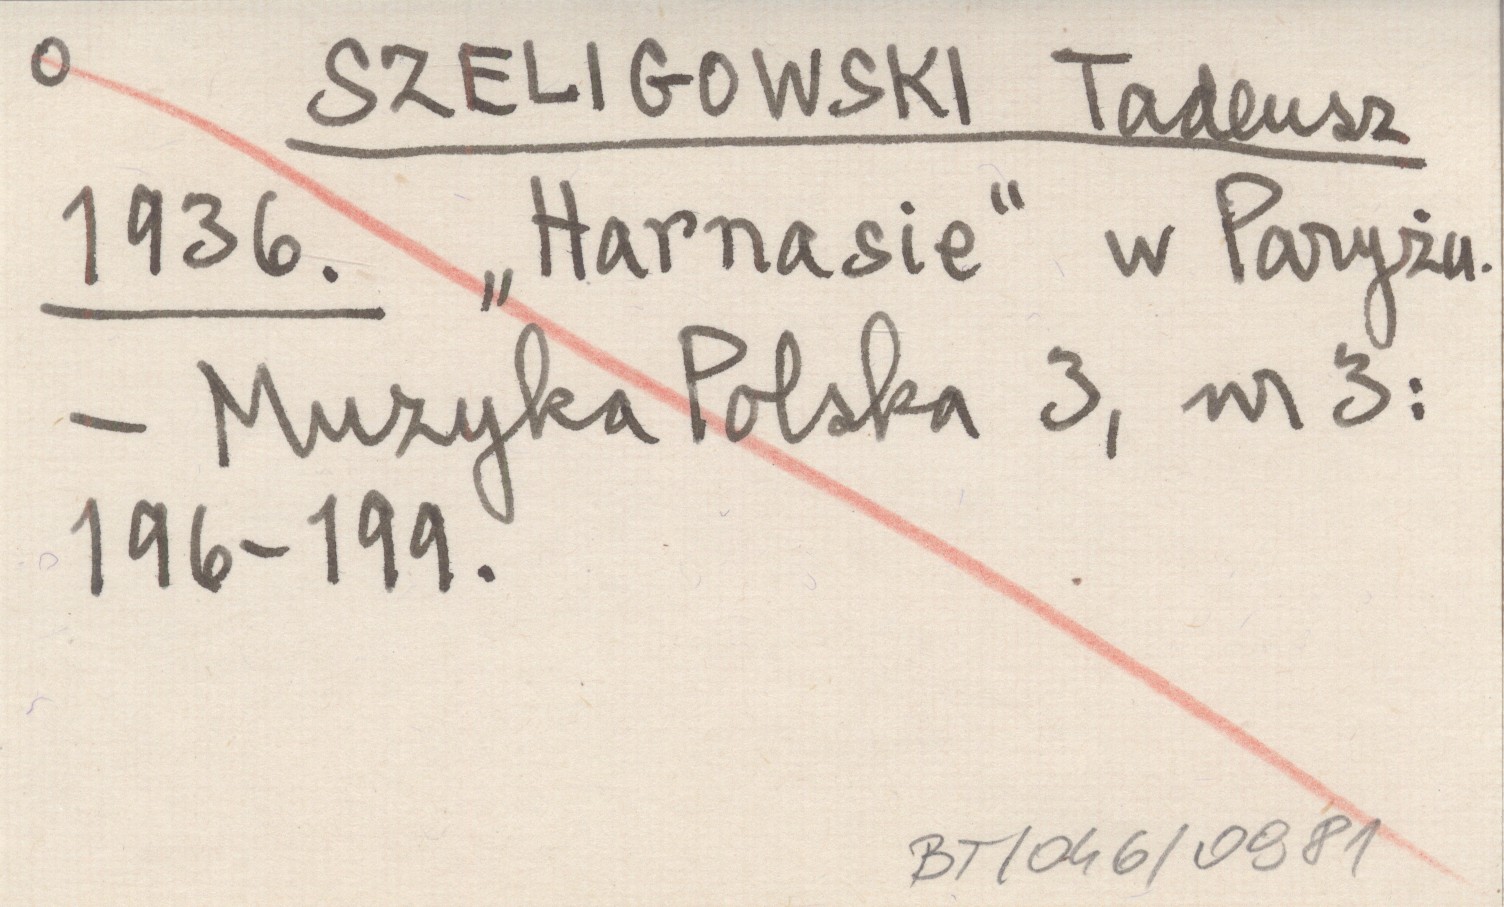 o SZELIGOWSKI Tadeusz
1936. „Harnasie“ w Paryżu.
– Muzyka Polska 3, nr 3:
196–199.
BT/046/0981